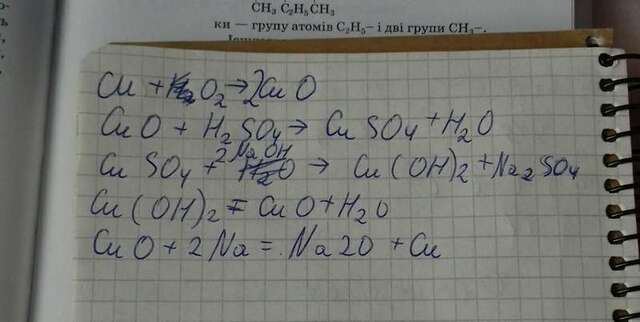 CH₃ C₂H₅CH₃
ки — групу атомів C₂H₅– і дві групи CH₃–.
Cu + O₂ → 2CuO
CuO + H₂SO₄ → CuSO₄ + H₂O
CuSO₄ + 2NaOH → Cu(OH)₂ + Na₂SO₄
Cu(OH)₂ = CuO + H₂O
CuO + 2Na = Na2O + Cu